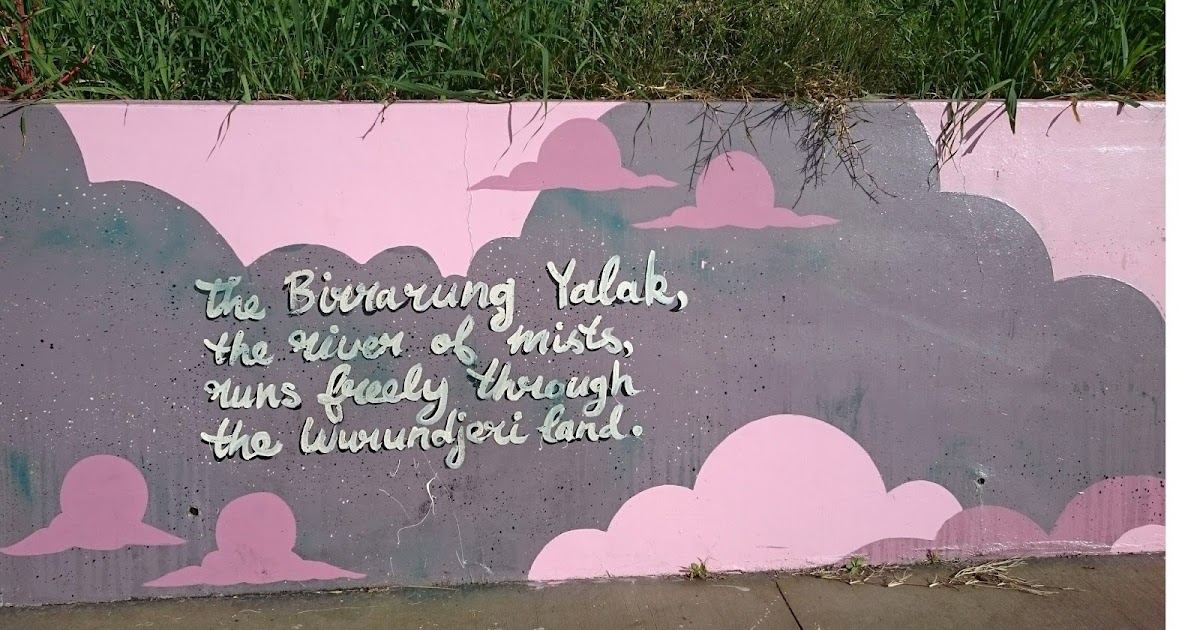 the Birrarung Yalak,
the river of mists,
runs freely through
the Wurundjeri land.